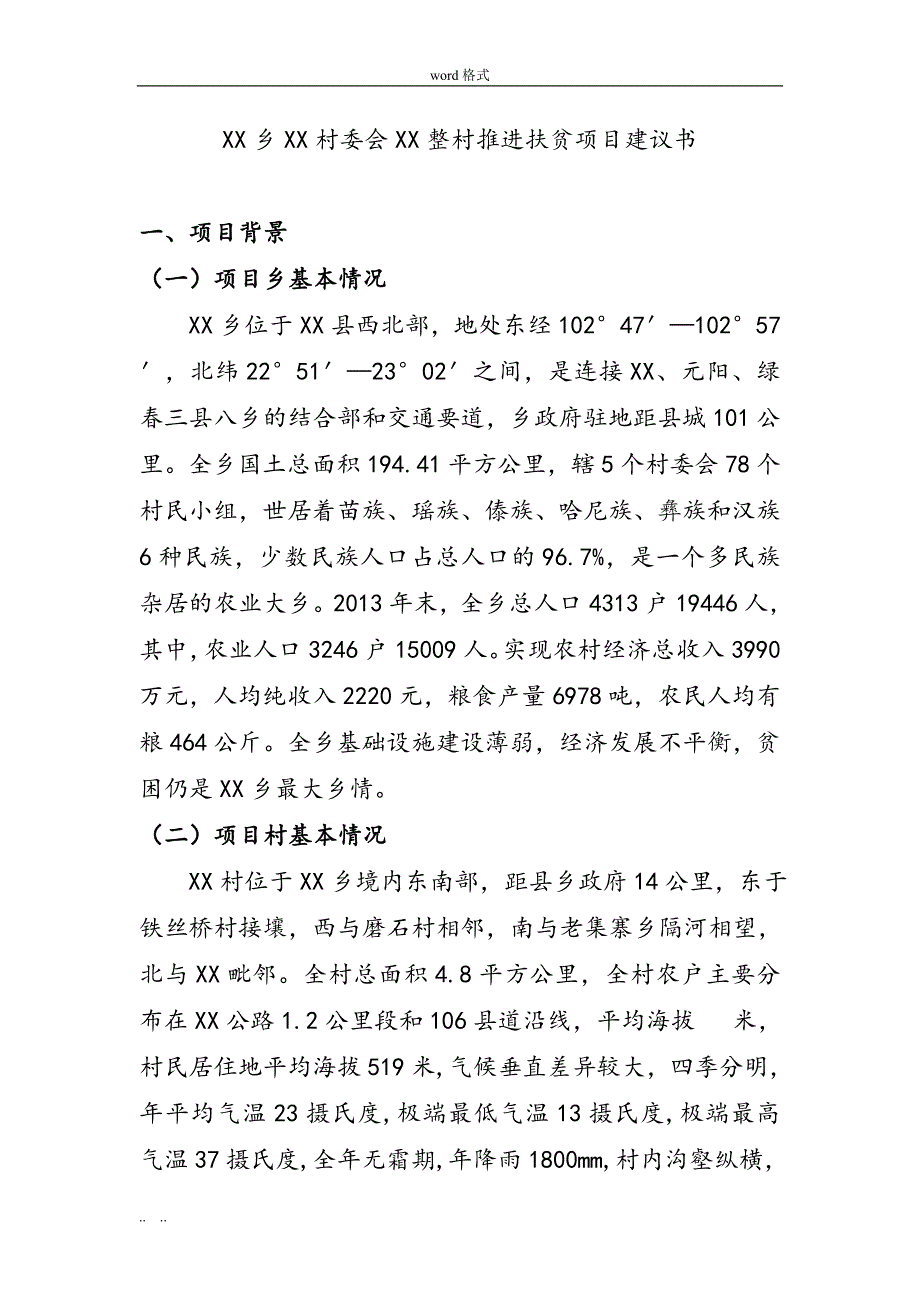 word 格式
XX 乡 XX 村委会 XX 整村推进扶贫项目建议书
一、项目背景
（一）项目乡基本情况
XX 乡位于 XX 县西北部，地处东经 102°47′—102°57
′，北纬 22°51′—23°02′之间，是连接 XX、元阳、绿
春三县八乡的结合部和交通要道，乡政府驻地距县城 101 公
里。全乡国土总面积 194.41 平方公里，辖 5 个村委会 78 个
村民小组，世居着苗族、瑶族、傣族、哈尼族、彝族和汉族
6 种民族，少数民族人口占总人口的 96.7%，是一个多民族
杂居的农业大乡。2013 年末，全乡总人口 4313 户 19446 人，
其中,农业人口 3246 户 15009 人。实现农村经济总收入 3990
万元，人均纯收入 2220 元，粮食产量 6978 吨，农民人均有
粮 464 公斤。全乡基础设施建设薄弱，经济发展不平衡，贫
困仍是 XX 乡最大乡情。
（二）项目村基本情况
XX 村位于 XX 乡境内东南部，距县乡政府 14 公里，东于
铁丝桥村接壤，西与磨石村相邻，南与老集寨乡隔河相望，
北与 XX 毗邻。全村总面积 4.8 平方公里，全村农户主要分
布在 XX 公路 1.2 公里段和 106 县道沿线，平均海拔 米，
村民居住地平均海拔 519 米,气候垂直差异较大，四季分明，
年平均气温 23 摄氏度,极端最低气温 13 摄氏度,极端最高
气温 37 摄氏度,全年无霜期,年降雨 1800mm,村内沟壑纵横，
.. ..